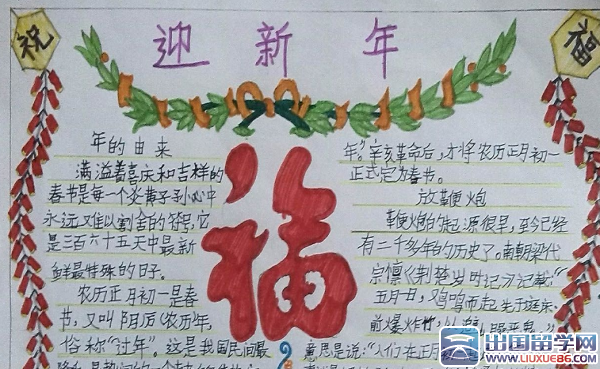 祝
迎新年
福
年的由来
满溢着喜庆和吉祥的
春节是每一个炎黄子孙心中
永远难以割舍的符号,它
是三百六十五天中最新
鲜最特殊的日子。
农历正月初一是春
节,又叫阴历(农历)年,
俗称“过年”。这是我国民间最
福
年”。辛亥革命后,才将农历正月初一
正式定为春节。
放鞭炮
鞭炮的起源很早,至今已经
有二千多年的历史了。南朝梁代
宗懔《荆楚岁时记》记载:“
五月一日,鸡鸣而起,先于庭前
前爆竹,
意思是说:“人们在正月
出国留学网
www.liuxue86.com